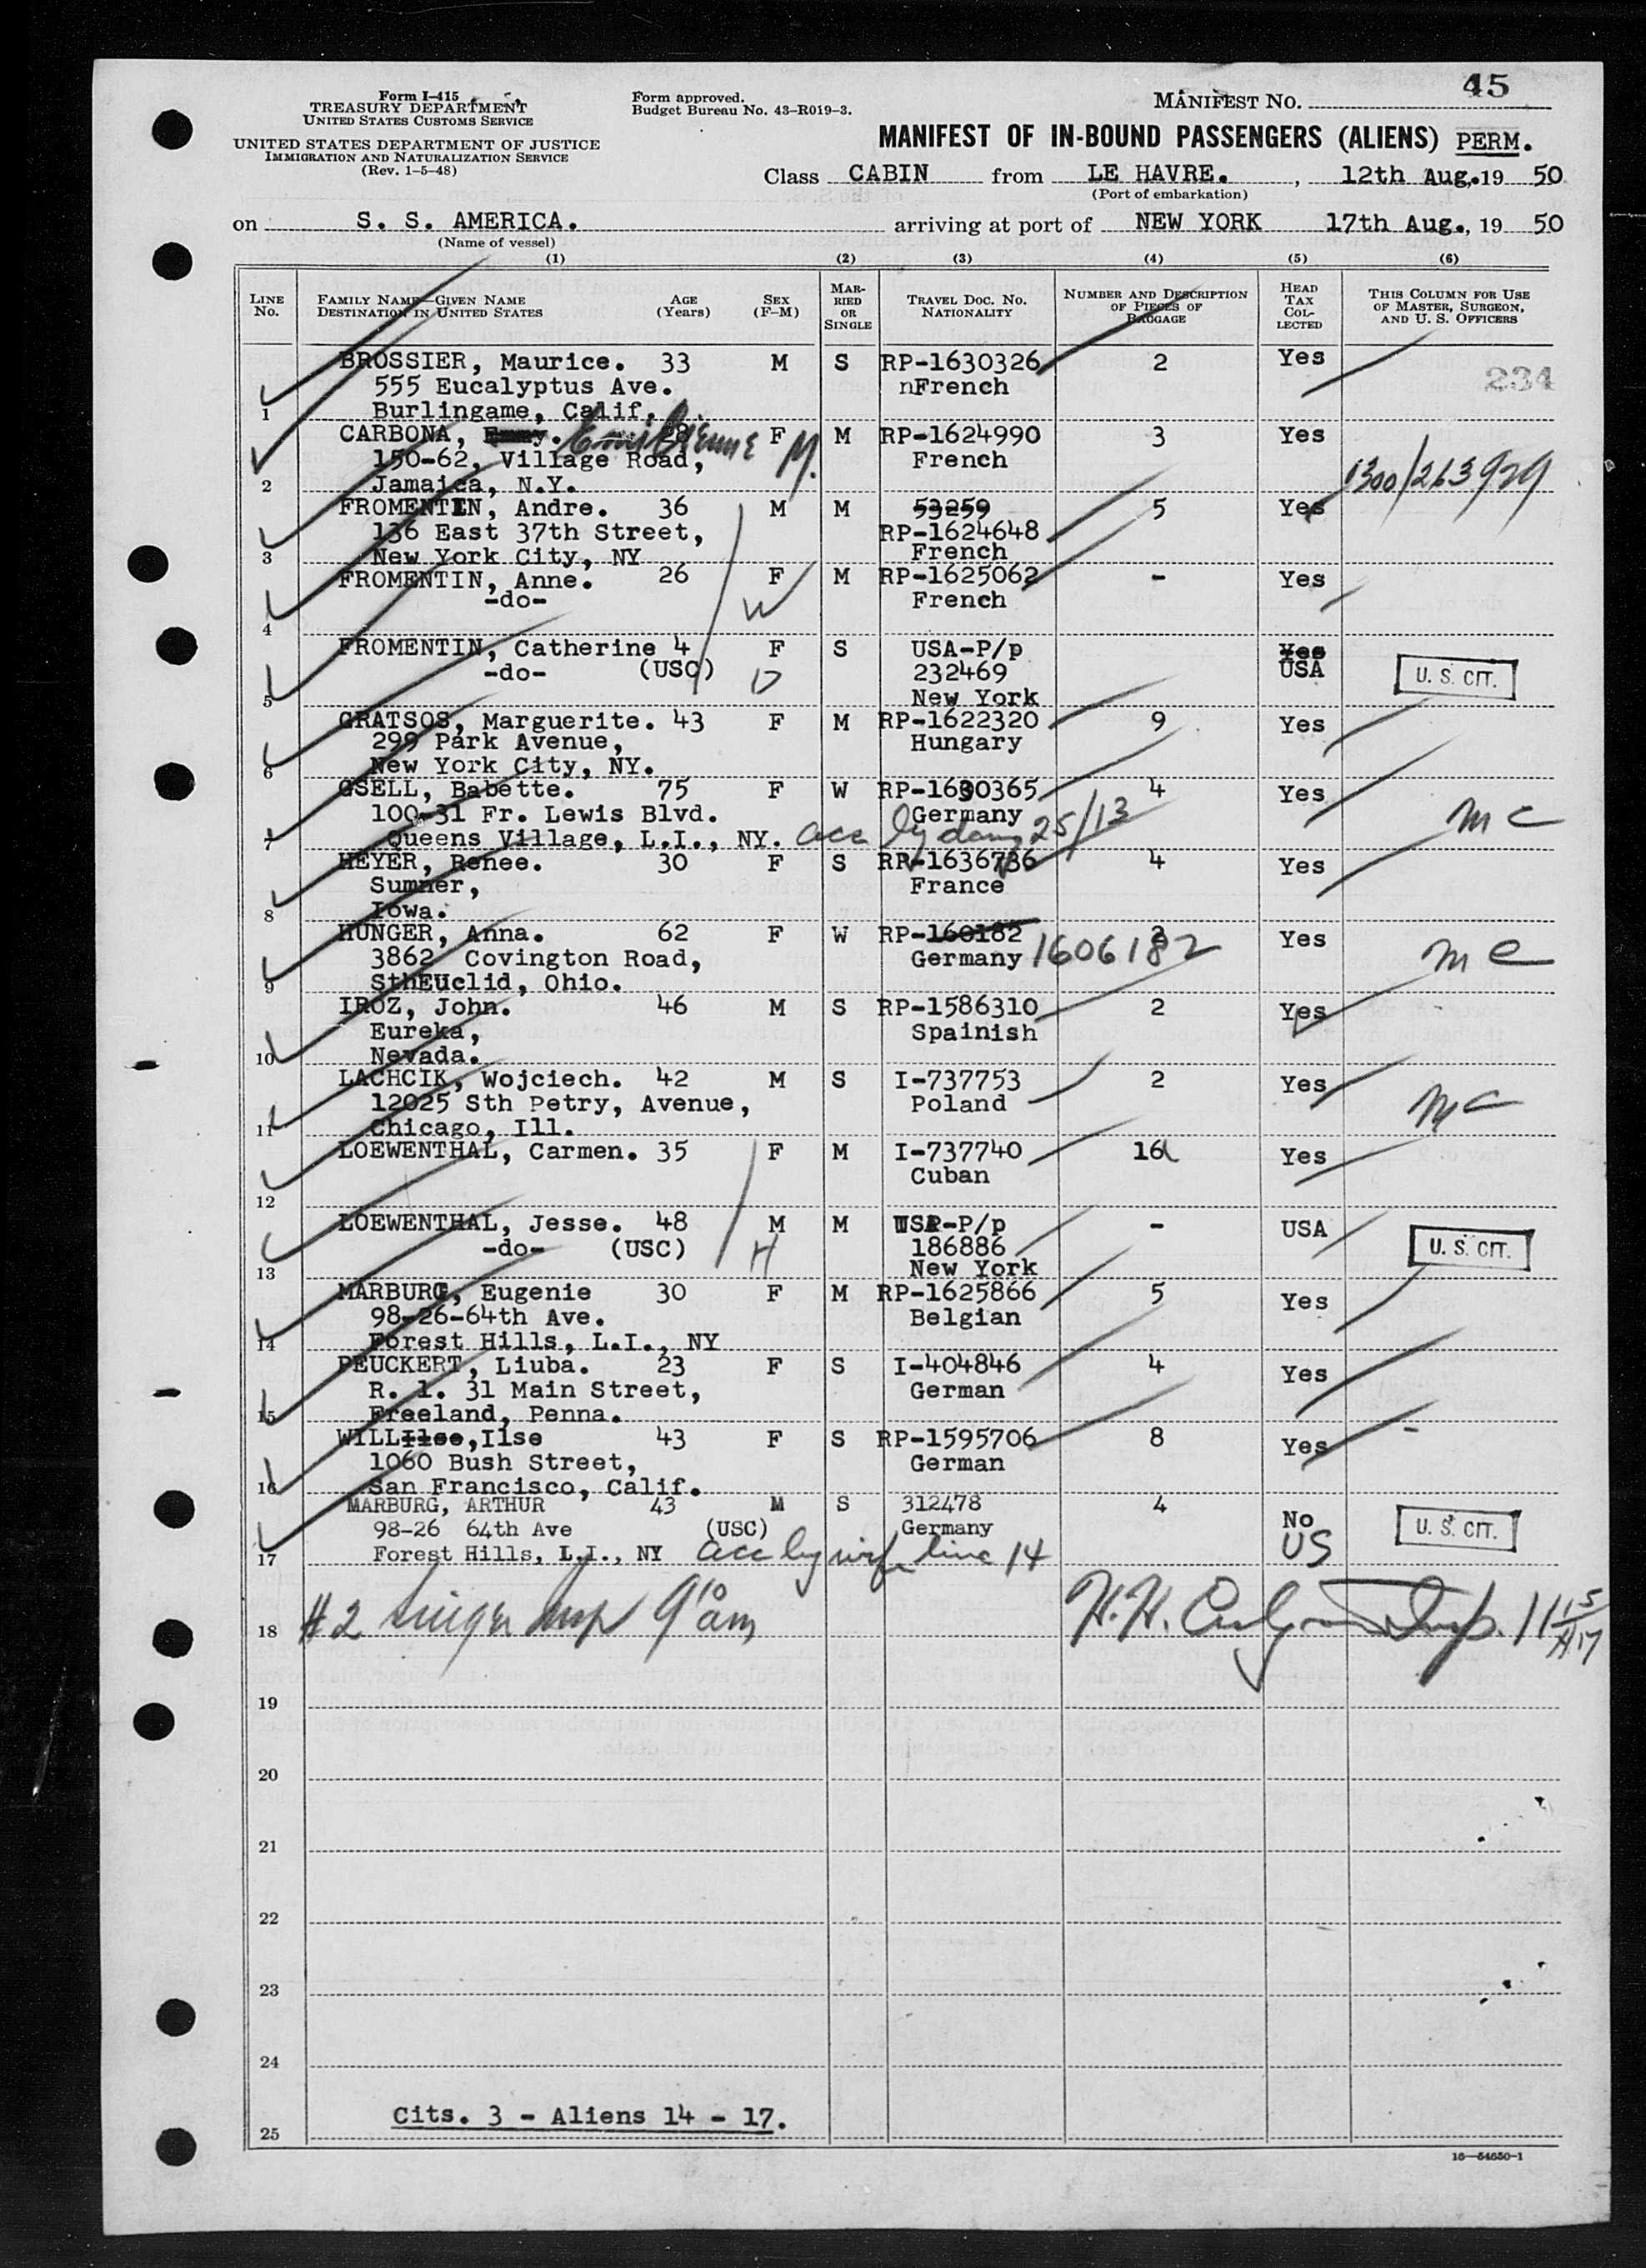 Form I-415
TREASURY DEPARTMENT
UNITED STATES CUSTOMS SERVICE
UNITED STATES DEPARTMENT OF JUSTICE
IMMIGRATION AND NATURALIZATION SERVICE
(Rev. 1-5-48)
Form approved.
Budget Bureau No. 43-R019-3.
MANIFEST NO. 45
MANIFEST OF IN-BOUND PASSENGERS (ALIENS) PERM.
Class CABIN from LE HAVRE. , 12th Aug. 19 50
(Port of embarkation)
on S. S. AMERICA. arriving at port of NEW YORK 17th Aug., 19 50
(Name of vessel)
(1) (2) (3) (4) (5) (6)
LINE No. FAMILY NAME—GIVEN NAME DESTINATION IN UNITED STATES AGE (Years) SEX (F-M) MARRIED OR SINGLE TRAVEL DOC. NO. NATIONALITY NUMBER AND DESCRIPTION OF PIECES OF BAGGAGE HEAD TAX COLLECTED THIS COLUMN FOR USE OF MASTER, SURGEON, AND U. S. OFFICERS
BROSSIER, Maurice. 33 M S RP-1630326 2 Yes
555 Eucalyptus Ave. nFrench 234
1 Burlingame, Calif.
CARBONA, Emilienne M. 28 F M RP-1624990 3 Yes
150-62, Village Road, French 1300/263929
2 Jamaica, N.Y.
FROMENTIN, Andre. 36 M M 53259 5 Yes
136 East 37th Street, RP-1624648
3 New York City, NY French
FROMENTIN, Anne. 26 F M RP-1625062 - Yes
-do- W French
4
FROMENTIN, Catherine 4 F S USA-P/p Yes
-do- (USC) D 232469 USA U. S. CIT.
5 New York
GRATSOS, Marguerite. 43 F M RP-1622320 9 Yes
299 Park Avenue, Hungary
6 New York City, NY.
GSELL, Babette. 75 F W RP-1630365 4 Yes
100-31 Fr. Lewis Blvd. Germany mc
7 Queens Village, L.I., NY. acc by 25/13
HEYER, Renee. 30 F S RP-1636736 4 Yes
Sumner, France
8 Iowa.
HUNGER, Anna. 62 F W RP-160182 3 Yes
3862 Covington Road, Germany 1606182 mc
9 SthEuclid, Ohio.
IROZ, John. 46 M S RP-1586310 2 Yes
Eureka, Spainish
10 Nevada.
LACHCIK, Wojciech. 42 M S I-737753 2 Yes
12025 Sth Petry, Avenue, Poland mc
11 Chicago, Ill.
LOEWENTHAL, Carmen. 35 F M I-737740 16 Yes
Cuban
12
LOEWENTHAL, Jesse. 48 M M USA-P/p - USA
-do- (USC) H 186886 U. S. CIT.
13 New York
MARBURG, Eugenie 30 F M RP-1625866 5 Yes
98-26-64th Ave. Belgian
14 Forest Hills, L.I., NY
PEUCKERT, Liuba. 23 F S I-404846 4 Yes
R. 1. 31 Main Street, German
15 Freeland, Penna.
WILLIlse,Ilse 43 F S RP-1595706 8 Yes
1060 Bush Street, German
16 San Francisco, Calif.
MARBURG, ARTHUR 43 M S 312478 4 No
98-26 64th Ave (USC) Germany US U. S. CIT.
17 Forest Hills, L.I., NY acc by wife line 14
18 #2 9 10 am H.H. Insp.
19
20
21
22
23
24
Cits. 3 - Aliens 14 - 17.
25
16—54650-1